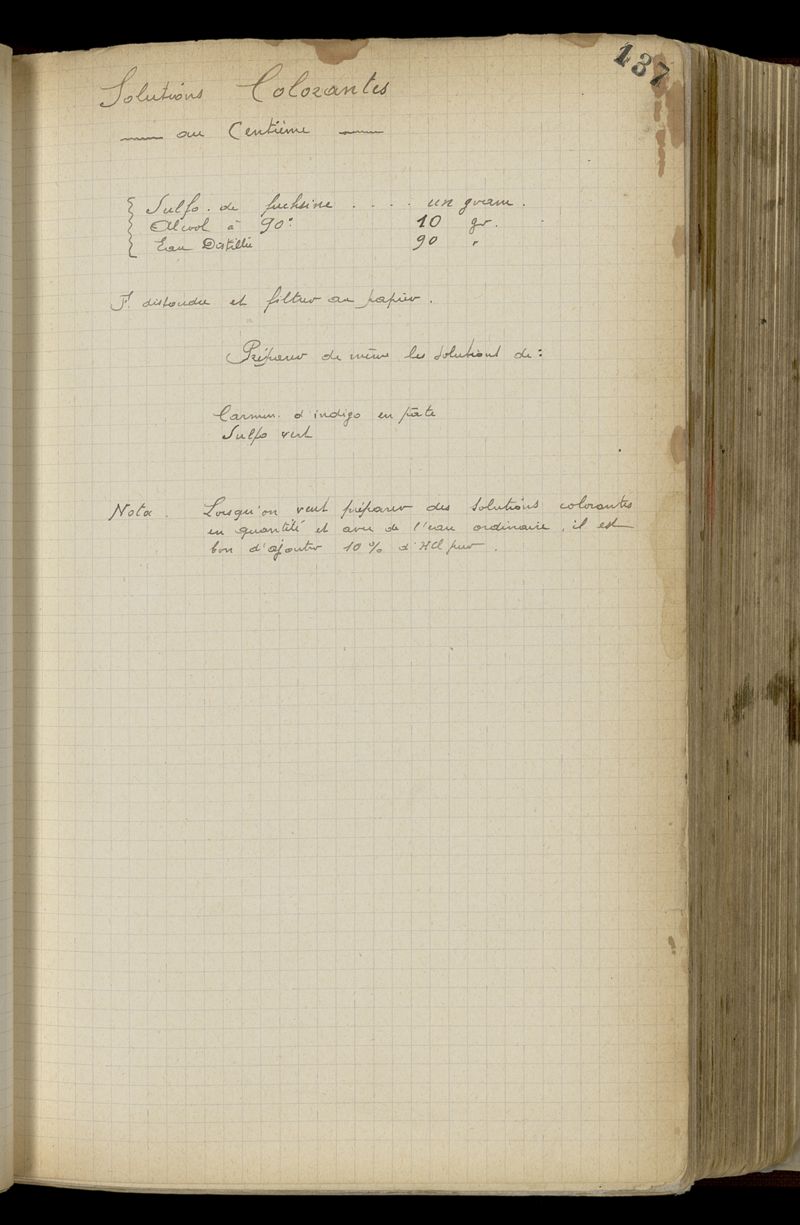 137
Solutions Colorantes
au Centième
Sulfo. de fuchsine . . . . un gram.
Alcool à 90° 10 gr.
Eau Distillée 90 "
F. dissoudre et filtrer au papier.
Préparer de même les solutions de :
Carmin d'indigo en pâte
Sulfo vert
Nota. Lorsqu'on veut préparer des solutions colorantes
en quantité et avec de l'eau ordinaire, il est
bon d'ajouter 10 % d'HCl pur.